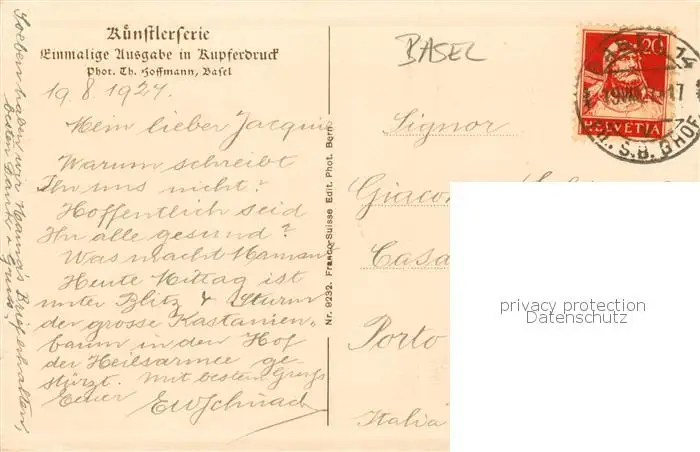 Künstlerserie
Einmalige Ausgabe in Kupferdruck
Phot. Th. Hoffmann, Basel
19.8.1924.
Mein lieber Jacquin
Warum schreibt
Ihr uns nicht?
Hoffentlich seid
Ihr alle gesund?
Was macht Maman?
Heute Mittag ist
unter Blitz & Sturm
der grosse Kastanien-
baum in den Hof
der Heilsarmee ge-
stürzt. Mit besten Gruss
Euer
Soeben haben wir Mama's Brief erhalten,
besten Dank & Gruss.
Nr. 9232. Franco-Suisse Edit. Phot. Bern
BASEL
20
HELVETIA
BASEL 14
S.B. BHOF
Signor
Casa
Porto
Italia
privacy protection
Datenschutz